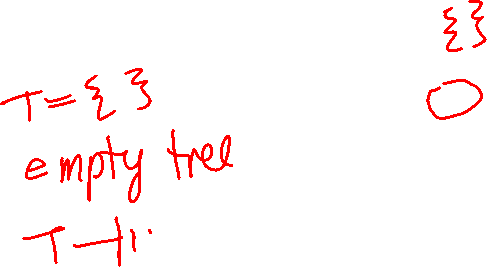 {}
T = { }
empty tree
T